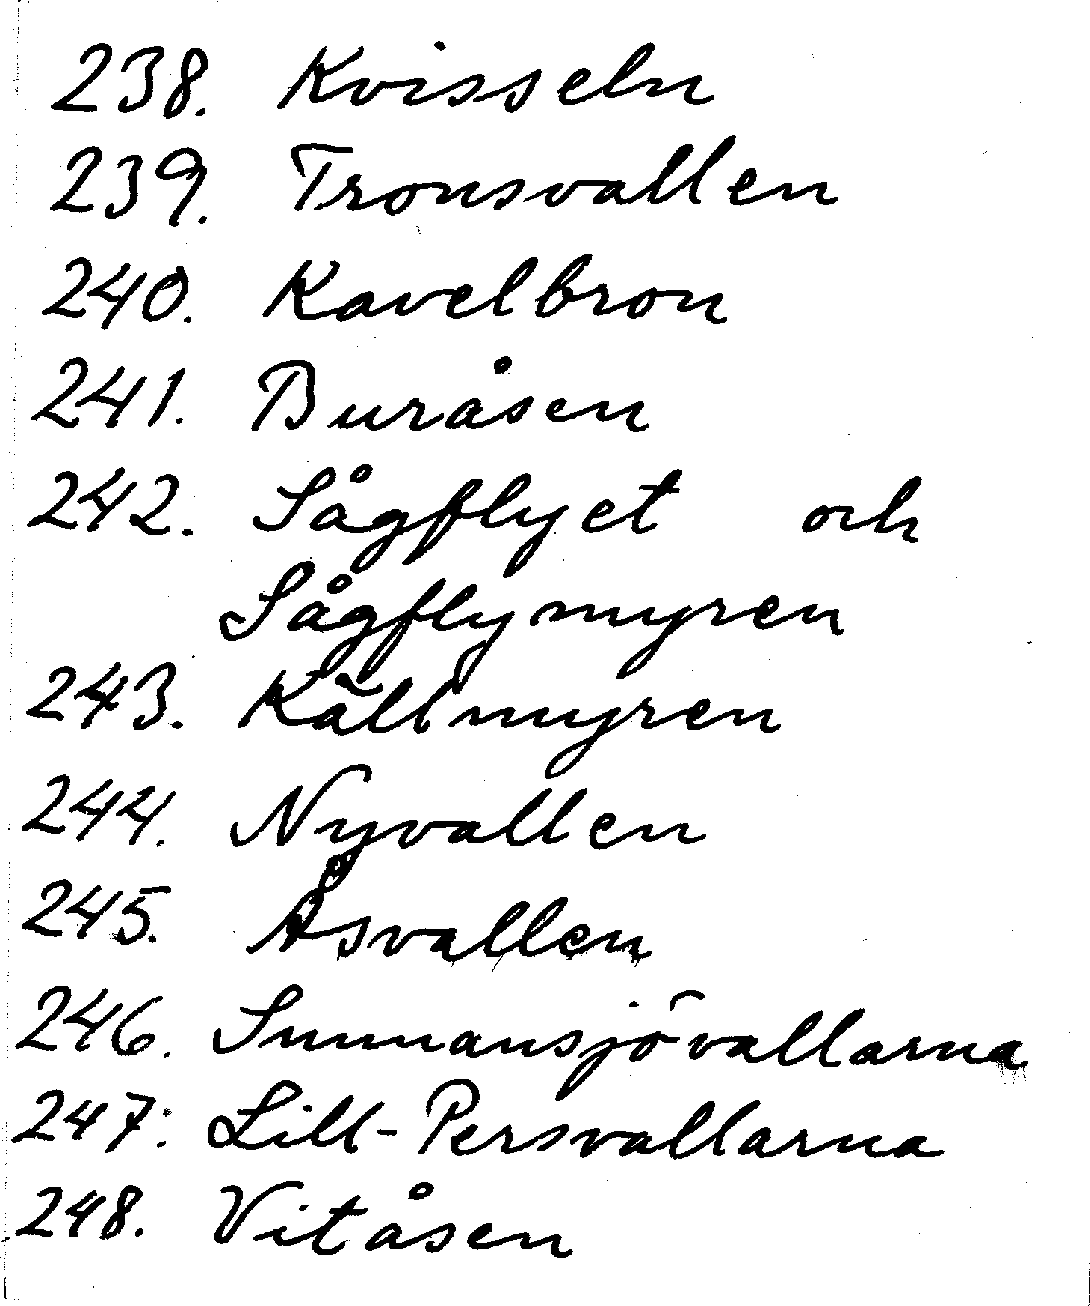 238. Kvisseln
239. Tronsvallen
240. Kavelbron
241. Buråsen
242. Sågflyet och
Sågflymyren
243. Källmyren
244. Nyvallen
245. Åsvallen
246. Sunnansjövallarna
247. Lill-Persvallarna
248. Vitåsen